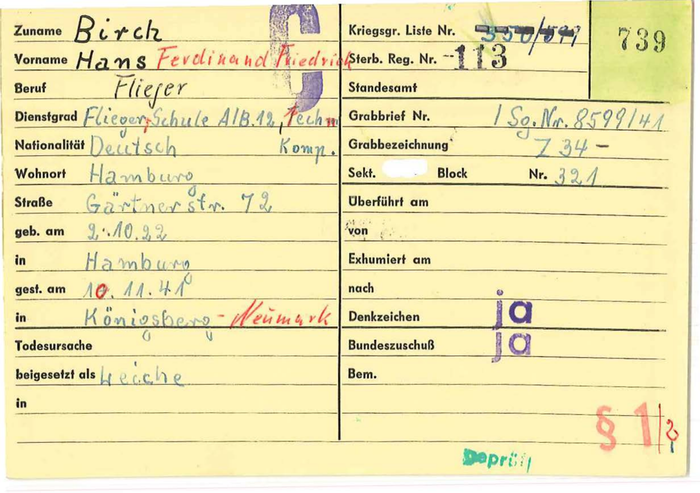 Zuname Birch
Vorname Hans Ferdinand Friedrich
Beruf Flieger
Dienstgrad Flieger, Schule A/B.12, Techn.
Nationalität Deutsch Komp.
Wohnort Hamburg
Straße Gärtnerstr. 72
geb. am 2.10.22
in Hamburg
gest. am 10.11.41
in Königsberg - Neumark
Todesursache
beigesetzt als Leiche
in
C
Kriegsgr. Liste Nr.
Sterb. Reg. Nr. 113
Standesamt
739
Grabbrief Nr. / Sg.Nr. 8599/41
Grabbezeichnung Z 34 -
Sekt. Block Nr. 321
Überführt am
von
Exhumiert am
nach
Denkzeichen ja
Bundeszuschuß ja
Bem.
§ 1/2
Geprüft